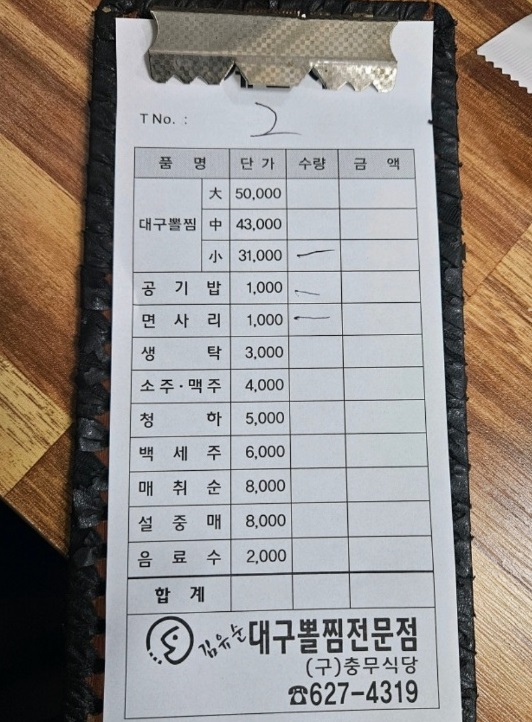 T No. : 2
품 명 단 가 수량 금 액
대구뽈찜 大 50,000
中 43,000
小 31,000 一
공 기 밥 1,000 一
면 사 리 1,000 一
생 탁 3,000
소주·맥주 4,000
청 하 5,000
백 세 주 6,000
매 취 순 8,000
설 중 매 8,000
음 료 수 2,000
합 계
김유순 대구뽈찜전문점
(구)충무식당
☎627-4319